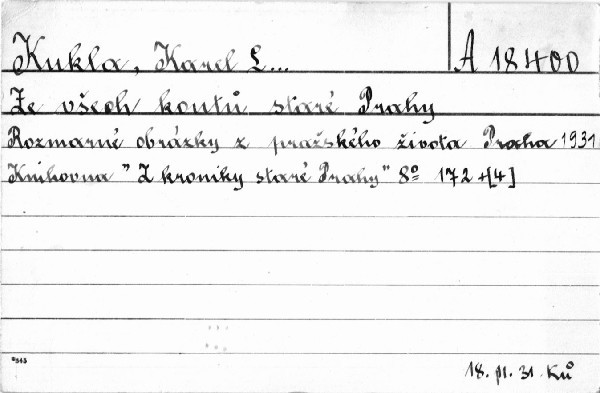 Kukla, Karel L... A 18400
Ze všech koutů staré Prahy
Rozmarné obrázky z pražského života Praha 1931
Knihovna "Z kroniky staré Prahy" 8º 172+[4]
18. 31. Ků